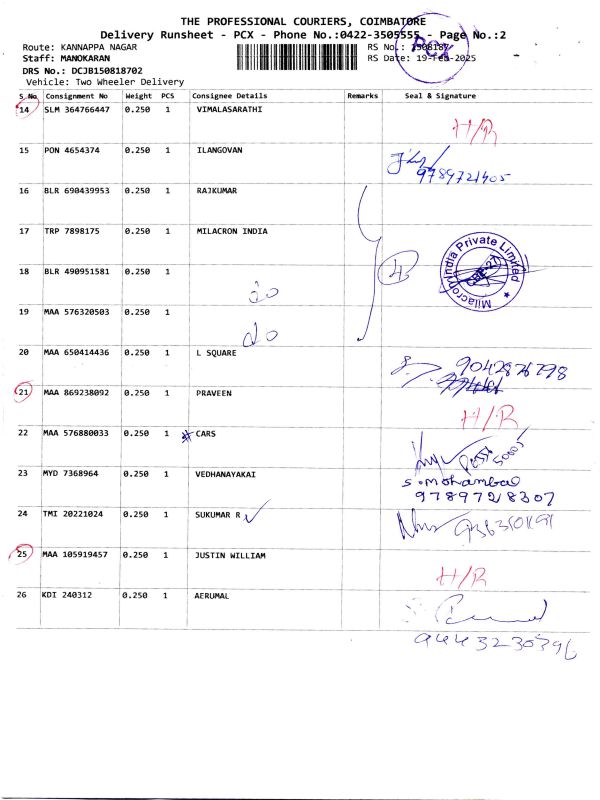 THE PROFESSIONAL COURIERS, COIMBATORE
Delivery Runsheet - PCX - Phone No.:0422-3505555 - Page No.:2
Route: KANNAPPA NAGAR RS No.: 1508187
Staff: MANOKARAN RS Date: 19-Feb-2025
DRS No.: DCJB150818702
Vehicle: Two Wheeler Delivery
PCX
S No Consignment No Weight PCS Consignee Details Remarks Seal & Signature
14 SLM 364766447 0.250 1 VIMALASARATHI
H/R
15 PON 4654374 0.250 1 ILANGOVAN
9789721405
16 BLR 690439953 0.250 1 RAJKUMAR
17 TRP 7898175 0.250 1 MILACRON INDIA
Milacron India Private Limited
18 BLR 490951581 0.250 1
do
19 MAA 576320503 0.250 1
do
20 MAA 650414436 0.250 1 L SQUARE
9042876798
21 MAA 869238092 0.250 1 PRAVEEN
H/R
22 MAA 576880033 0.250 1 CARS
23 MYD 7368964 0.250 1 VEDHANAYAKAI
S.mohambal
9789728307
24 TMI 20221024 0.250 1 SUKUMAR R
25 MAA 105919457 0.250 1 JUSTIN WILLIAM
H/R
26 KDI 240312 0.250 1 AERUMAL
9443230796